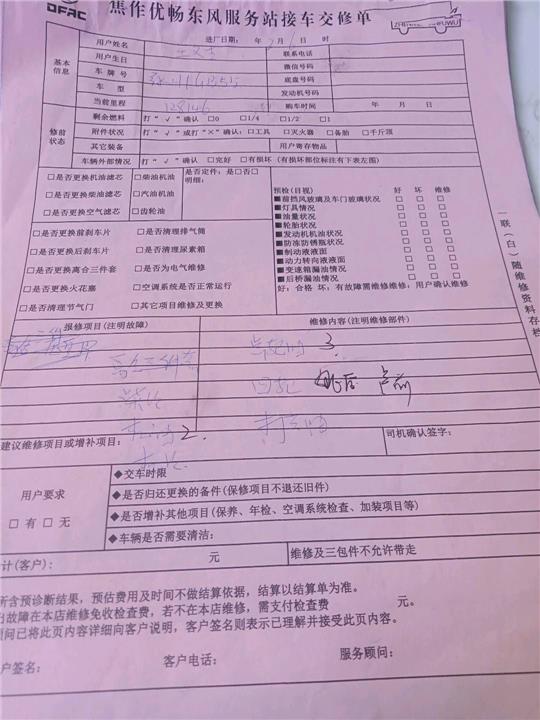 DFAC
焦作优畅东风服务站接车交修单
进厂日期： 年 月 日 时
基本信息
用户姓名 联系电话
用户生日 微信号码
车牌号 底盘号码
车型 发动机号码
当前里程 128146 购车时间 年 月 日
修前状态
剩余燃料 打“√”确认 □0 □1/4 □1/2 □1
附件状况 打“√”或打“×”确认：□工具 □灭火器 □备胎 □千斤顶
其它装备 用户寄存物品
车辆外部情况 打“√”确认 □完好 □有损坏（有损坏部位标注有下表左图）
□是否更换机油滤芯 □柴油机油 是否定件：是□否□
明细：
□是否更换柴油滤芯 □汽油机油
□是否更换空气滤芯 □齿轮油
□是否更换前刹车片 □是否清理排气筒
□是否更换后刹车片 □是否清理尿素箱
□是否更换离合三件套 □是否为电气维修
□是否更换火花塞 □空调系统是否正常运行
□是否清理节气门 □其它项目维修及更换
预检(目视) 好 坏 维修
■前挡风玻璃及车门玻璃状况 □ □ □
■灯具情况 □ □ □
■油量状况 □ □ □
■轮胎状况 □ □ □
■发动机机油状况 □ □ □
■防冻防锈瓶状况 □ □ □
■制动液液面 □ □ □
■动力转向液液面 □ □ □
■变速箱漏油情况 □ □ □
■后桥漏油情况 □ □ □
好：合格 坏：有故障需维修维修：用户确认维修
一联（白）随维修资料存档
报修项目(注明故障) 维修内容(注明维修部件)
3
2.
建议维修项目或增补项目： 司机确认签字：
用户要求
□有 □无
◆交车时限
◆是否归还更换的备件(保修项目不退还旧件)
◆是否增补其他项目(保养、年检、空调系统检查、加装项目等)
◆车辆是否需要清洁：
计(客户)： 元 维修及三包件不允许带走
所含预诊断结果，预估费用及时间不做结算依据，结算以结算单为准。
出故障在本店维修免收检查费，若不在本店维修，需支付检查费 元。
顾问已将此页内容详细向客户说明，客户签名则表示已理解并接受此页内容。
户签名： 客户电话： 服务顾问：